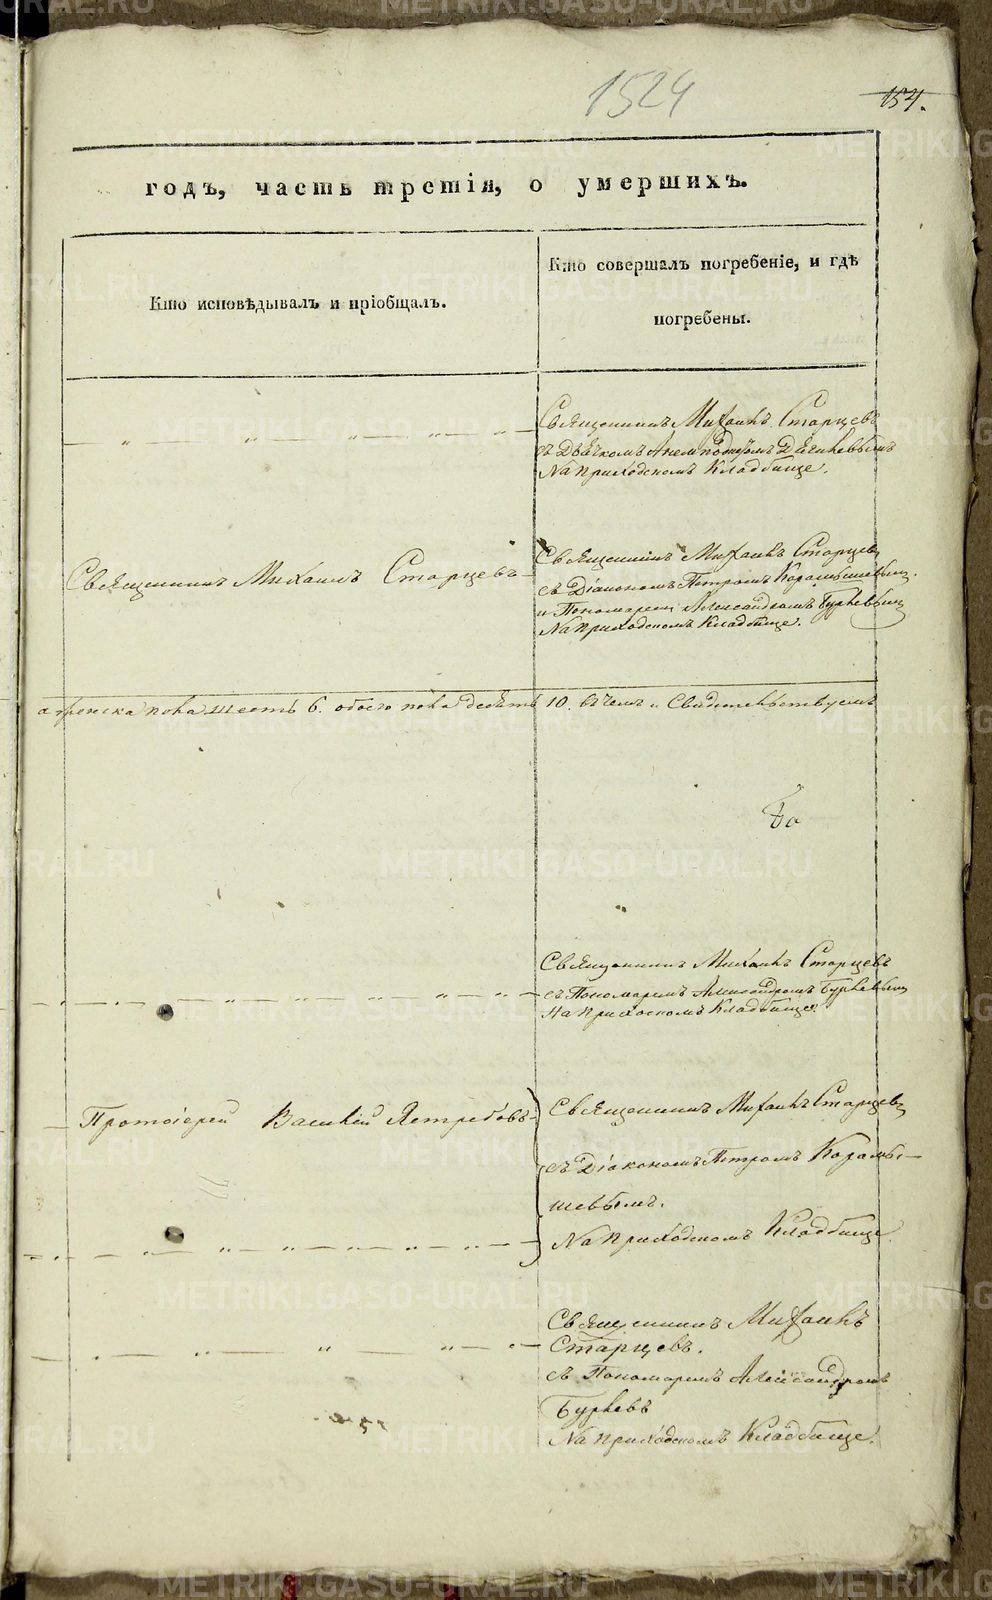 1524
154.
годъ, часть третія, о умершихъ.
Кто исповѣдывалъ и пріобщалъ.
Кто совершалъ погребеніе, и гдѣ
погребены.
Священникъ Михаилъ Старцевъ
съ Дьячкомъ
На приходскомъ Кладбище.
Священникъ Михаилъ Старцевъ
Священникъ Михаилъ Старцевъ
съ Діакономъ Петромъ
и Пономаремъ Александромъ
На приходскомъ Кладбище.
а женска пола шесть 6. обоего пола десять 10. въ чемъ и Свидетельствуемъ
Бо
Священникъ Михаилъ Старцевъ
съ Пономаремъ Александромъ
На Прихоскомъ Кладбище
Протоіерей Василій Ястребовъ
Священникъ Михаилъ Старцевъ
съ Діакономъ Петромъ Карамы-
шевымъ.
На приходскомъ Кладбище
Священникъ Михаилъ
Старцевъ.
съ Пономаремъ Александромъ
На приходскомъ Кладбище.
METRIKI.GASO-URAL.RU